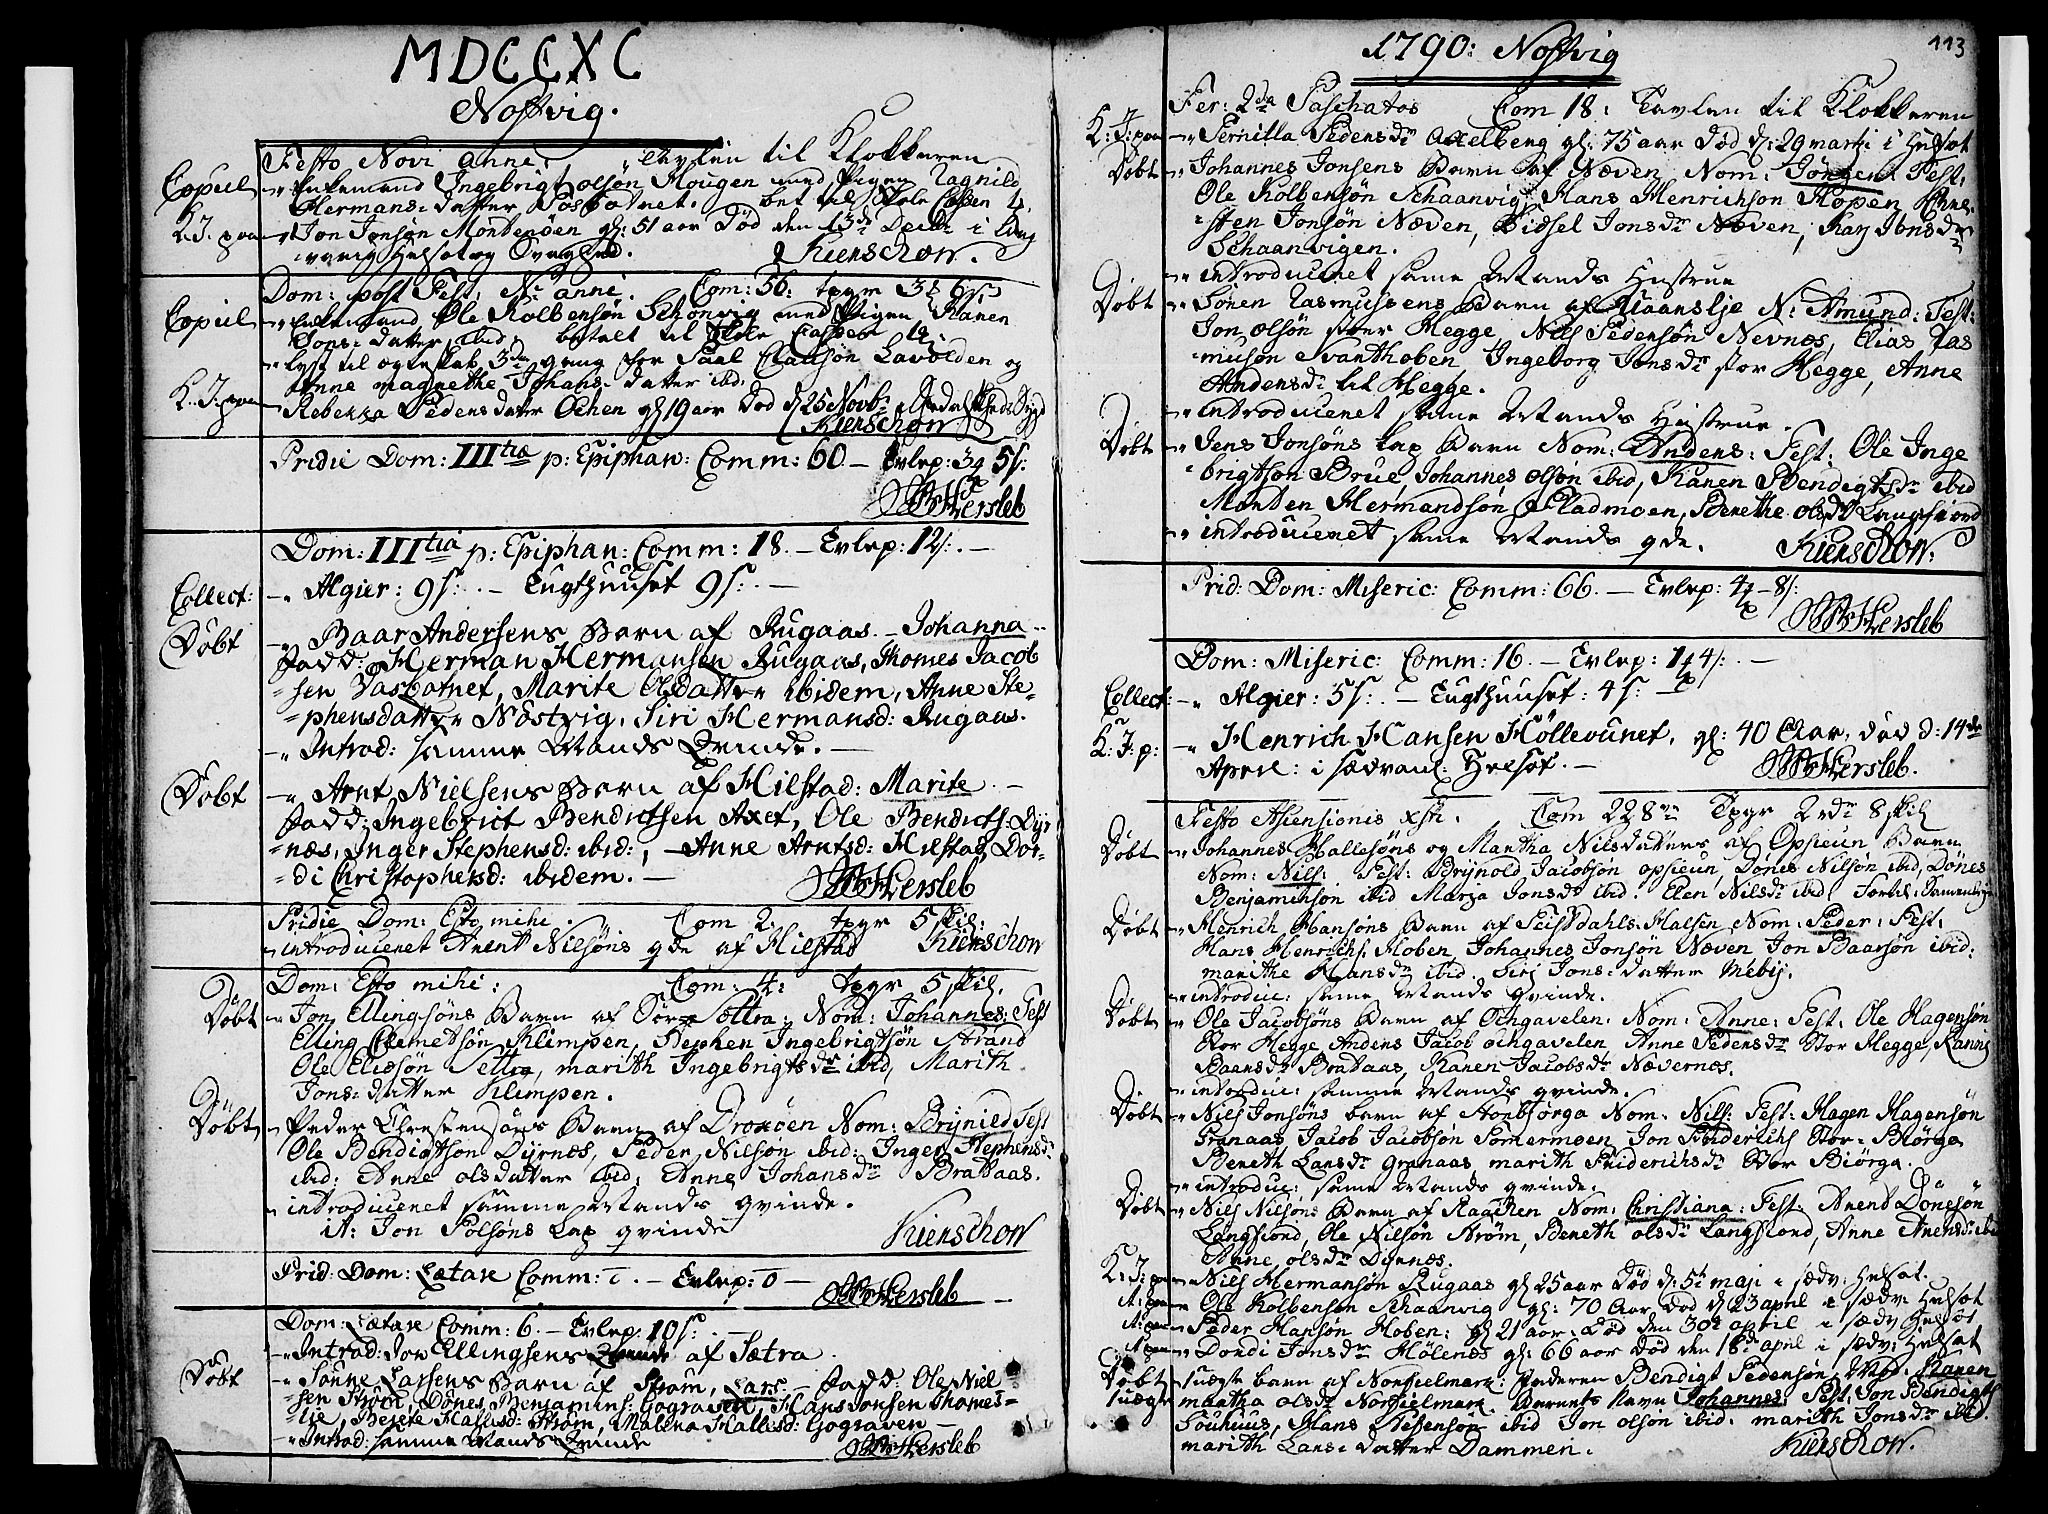 MDCCXC
Nostvig.
Festo Novi anni, Tavlen til Klokkeren
Copul. Enkemand Ingebrigt olsøn Hougen med Pigen Ragnild
Hermans-datter bet til Skole Cassen
K: J: paa Jon Jonsøn gl: 51 aar død den 13de Decbr i lang
varig Helsot og Svaghed.
Kierschow.
Dom: post Fest: N: anni. Com: 56: tpgr
Copul. Enkemand Ole Kolbensøn Schonvig med Pigen Karen
Jons-datter ibid: betalt til Skole Cassen
Lyst til ægteskab 3de gang for Paal Clausøn Lavolden og
Anne magrethe Johans-datter ibd.
K: J: paa Rebekka Pedersdatter Ochen gl 19 aar død d 25 Novbr
Kierschow
Pridie Dom: IIItia p: Epiphan: Comm: 60 — Tvlep: 5 s:
Hersleb
Dom: IIItia p: Epiphan: Comm: 18. — Tvlep: 12 s: —
Collect: Algier: 9 s: — Tugthuuset 9 s: —
Døbt Baar Andersens Barn af Rugaas — Johanna —
Fadd: Herman Hermansen Rugaas, Thomes Jacob
sen Marite Olsdatter ibidem, Anne Ste-
phensdatter Nøstvig, Siri Hermansd: Rugaas.
Introd: samme Mands Qvinde. —
Døbt Arnt Nielsens Barn af Hilstad: Marite —
Fadd: Ingebrict Bendictsen Axet, Ole Bendictss: Dyr
næs, Inger Stephensd: ibid:, — Anne Arntsd: Hilstad, Dor-
di Christophersd: ibidem. —
Hersleb
Pridie Dom: Esto mihi. Com 2. tpgr 5 skil.
introduceret Arent Nilsøns qde af Hilstad Kierschow
Dom: Esto mihi: Com: 4: tpgr 5 skil.
Døbt Jon Ellingsøns Barn af Sør-Settra: Nom: Johannes: Test
Elling Clemetsøn Klimpen, Stephen Ingebrigtsøn Strand
Ole Eliasøn Settra, marith Ingebrigtsdr ibid, Marith
Jons-datter Klimpen.
Døbt Peder Christensøns Barn af Droxöen Nom: Brynild Test
Ole Bendigtsøn Dyrnes, Peder Nilsøn ibid: Inger Stephensdr
ibid: Anne olsdatter ibid: Anne Johansdr Brataas.
introduceret samme Mands qvinde.
it: Jon Polsøns Lap qvinde Kierschow
Prid: Dom: Lætare Comm: — Tvlep: 0 — Hersleb
Dom: Lætare Comm: 6. — Tvlep: 10 s: —
Introd: Jon Ellingsens Qvinde af Sætra
Døbt Sønne Larsens Barn af Strøm, Lars — Fadd: Ole Niel
sen Strøm, Dønes Benjamins: Gograven, Hans Jonsen Thomes-
lie, Berete Hallesd: Strøm, Malena Hallesd: Gograven —
Introd: samme Mands Qvinde Hersleb
1790: Nostvig 113
Fer: 2da Paschatos Com 18: Tavlen til Klokkeren
K: J: paa Pernilla Pedersdr Axelberg gl: 75 aar død d: 29 marti i Helsot
Døbt Johannes Jonsens Barn af Næven Nom: Jørgen: Test:
Ole Kolbensøn Schaanvig, Hans Henrichsøn Hopen, Chre-
sten Jonsøn Næven, Sidsel Jonsdr Næven, Kary Jonsdr
Schaanvigen.
introduceret same Mands Hustrue
Døbt Sören Rasmussens Barn af N: Amund: Test:
Jon olsøn stor Hegge Nils Pedersøn Nevnes, Elias Ras
musøn Svanthoben, Ingeborg Jonsdr stor Hegge, Anne
Andersdr lit Hegge.
introduceret same Mands Hustrue.
Døbt Jens Jonsøns Lap Barn Nom: Anders: Test: Ole Inge
brigtsøn Brue, Johannes olsøn ibid, Karen Bendigtsdr ibid
Morten Hermandsøn Fladmoen, Berethe olsdr Langfiord
introduceret same Mands qde. Kierschow.
Prid: Dom: Miseric: Comm: 66. — Tvlep: 4 — 8 s:
Hersleb
Dom: Miseric: Comm: 16. — Tvlep: 1 4 s: —
Collect: Algier: 5 s: — Tugthuuset: 4 s: —
K: J: p: Henrich Hansen Höllevunet, gl: 40 Aar, død d: 14de
April: i sædvanl: Helsot. — Hersleb.
Festo Ascensionis xsti. Com 228 Tpgr 2 rdr 8 skil
Døbt Johannes Hallesøns og Martha Nilsdatters af Opsieun Barn
Nom: Nils: Test: Brynold Jacobsøn opsieun, Dönes Nilsøn ibid, Dönes
Benjaminsøn ibid Marja Jonsdr ibid: Elen Nilsdr ibid:
Døbt Henrich Hansøns Barn af Halsen Nom: Peder: Test:
Hans Henrichs: Hoben, Johannes Jonsøn Næven Jon Baarsøn ibid:
marithe Hansdr ibid. Siri Jons-datter Mebÿ.
introduc: same Mands qvinde.
Døbt Ole Jacobsøns Barn af Ochgavelen: Nom: Anne: Test: Ole Hagensøn
Stor Hegge Anders Jacob ochgavelen Anne Pedersdr Stor Hegge, Karen
Baarsdr Brataas, Karen Jacobsdr Nævernes.
introduc: samme Mands qvinde.
Døbt Nils Jonsøns barn af Storbjörga Nom: Nils: Test: Hagen Hagensøn
Granaas Jacob Jacobsøn Sommermoen Jon Friderichs Stor-Biörga
Bereth Larsdr Granaas, marith Friderichsdr Stor Biörga.
introduc: same Mands qvinde.
Døbt Nils Nilsøns Barn af Raachen Nom: Christiana: Test: Arend Dönesøn
Langfiord, Ole Nilsøn Strøm, Bereth olsdr Langfiord, Anne Arensdr ibid
Anne olsdr Dyrnes.
K: J: paa Nils Hermansøn Rugaas gl 25 aar død d: 5te maji i sædv: Helsot.
it: paa Ole Kolbensøn Schaanvig gl: 70 aar død d 23 april i sædv: Helsot
it: paa Peder Hansøn Hoben: gl 21 aar død den 30te april i sædv Helsot
it: paa Dordi Jonsdr Holenes gl: 66 aar død den 18de april i sædv: Helsot
Døbt uægte barn af Norgielmark: Faderen Bendigt Pedersøn,
uægte martha olsdr Norgielmark. Barnets Navn Johannes: Test: Jon Bendigts
Souhuus, Hans ibid Jon olsøn ibid: marith Jonsdr ibid.
marith Lars-datter Dammen. Kierschow.